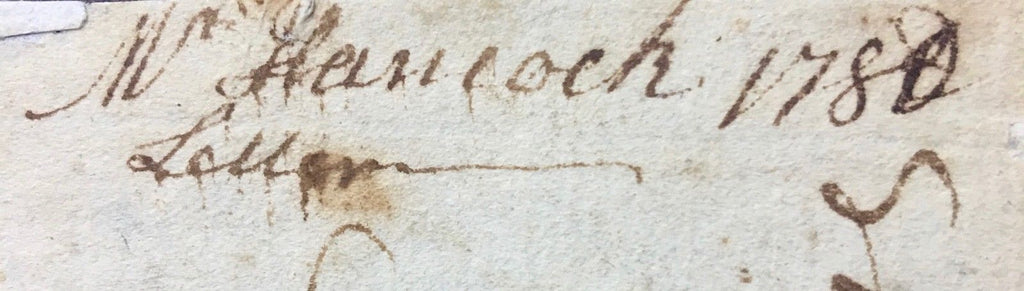 Mr Hancock 1780
Letter